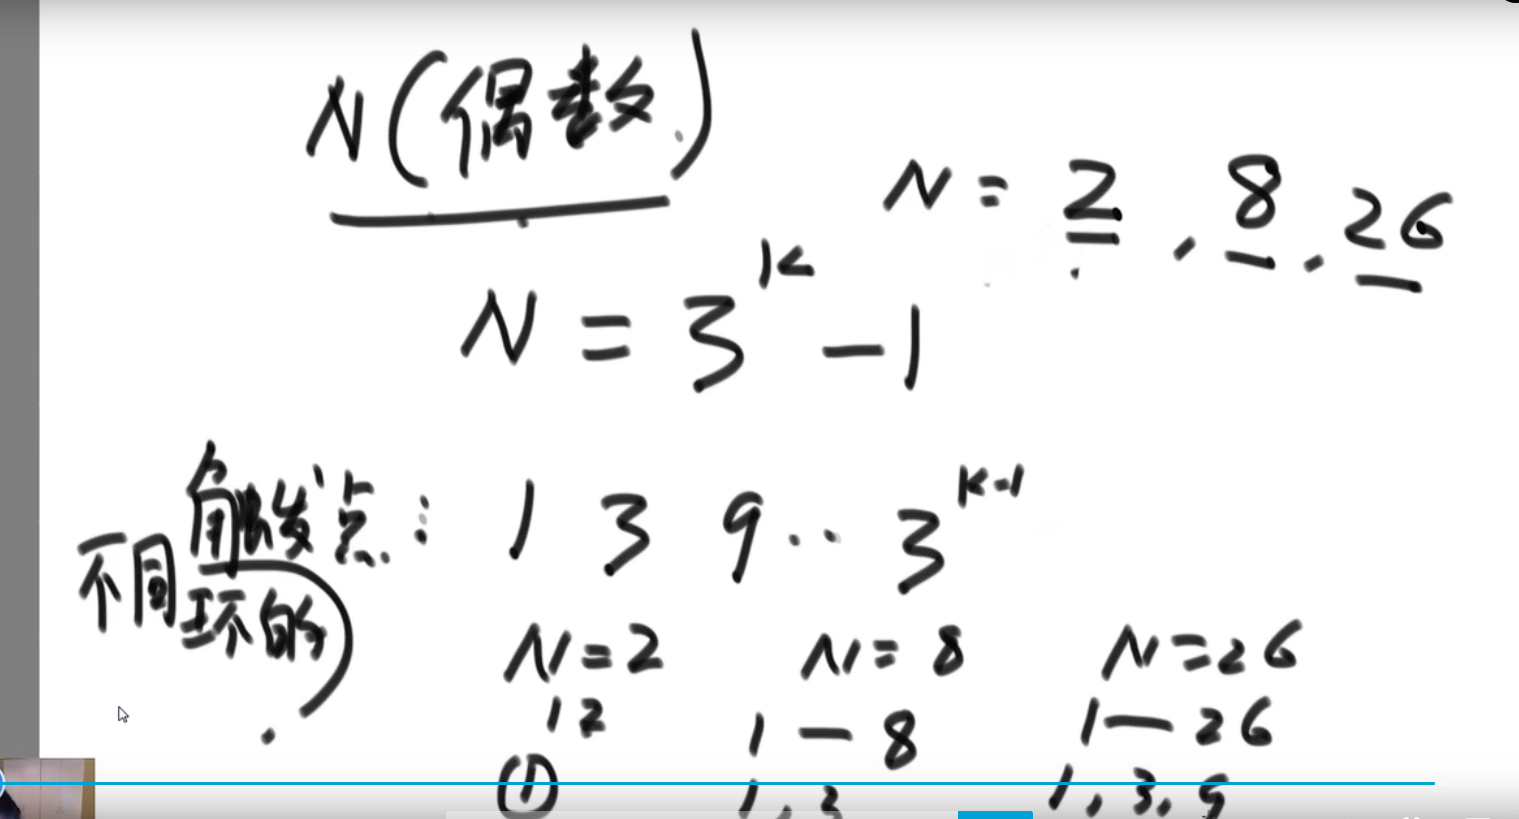 N(偶数)
N = 2, 8, 26
N = 3^K - 1
触发点: 1 3 9 ·· 3^K-1
不同环的
N=2 N=8 N=26
1 2 1 — 8 1 — 26
① 1, 3 1, 3, 9